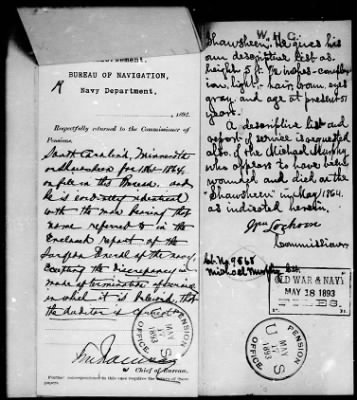 Indorsement.
BUREAU OF NAVIGATION,
Navy Department.
, 189
Respectfully returned to the Commissioner of
Pensions.
North Carolina, Minnesota
for 1861-1864,
on file in this Bureau. and
he is evidently identical
with the man bearing that
name referred to in the
Enclosed report of the
Surgeon General of the navy,
Excepting the discrepancy in
made of termination of service
in which it is believed, that
the Auditor is correct
Chief of Bureau.
Further correspondence in this case requires the return of these
papers.
PENSION OFFICE
MAY
17
1893
U S
W. H. C.
"Shawsheen." He gives his
own descriptive list as
height 5 ft. 7½ inches - complex-
ion, light - hair, brown, eyes
gray, and age at present 51
years.
A descriptive list and
report of service is requested
also, of the Michael Murphy,
who appears to have been
wounded and died on the
"Shawsheen" in May 1864.
as indicated herein.
Wm Lochren
Commissioner.
Michael Murphy
OLD WAR & NAVY
MAY 18 1893
FILES.
PENSION OFFICE
MAY
17
1893
U S